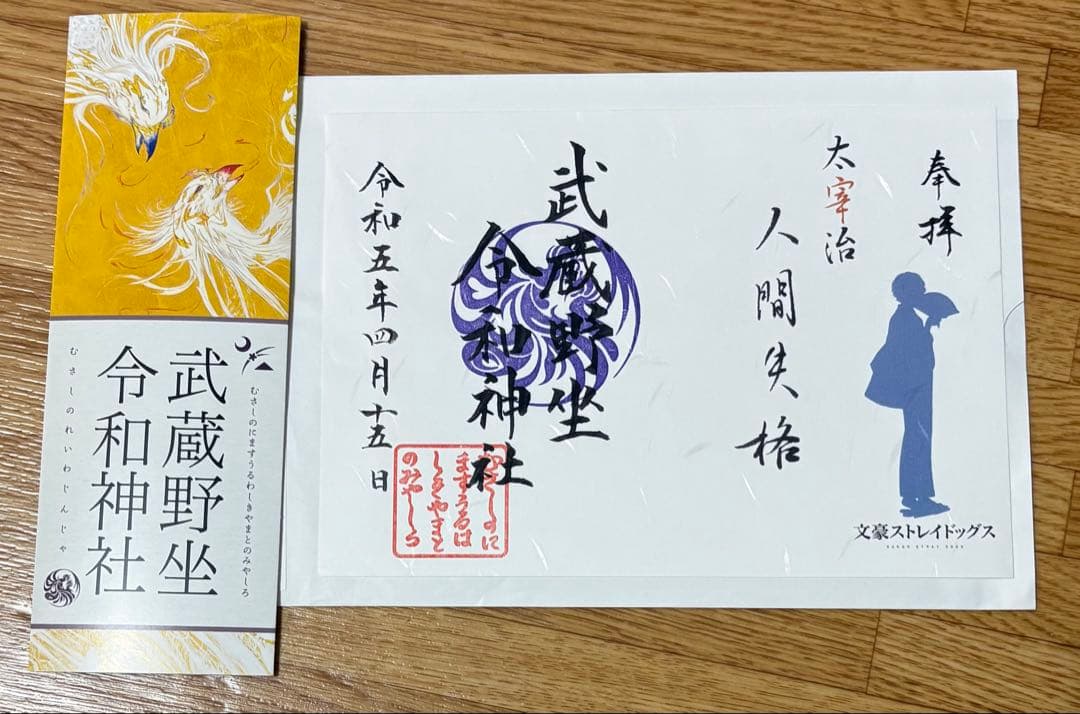 武蔵野坐
令和神社
むさしのにますうるわしきやまとのみやしろ
むさしのれいわじんじゃ
奉拝
太宰治
人間失格
武蔵野坐
令和神社
令和五年四月十五日
むさしのに
ますうるは
しきやまと
のみやしろ
文豪ストレイドッグス
BUNGO STRAY DOGS